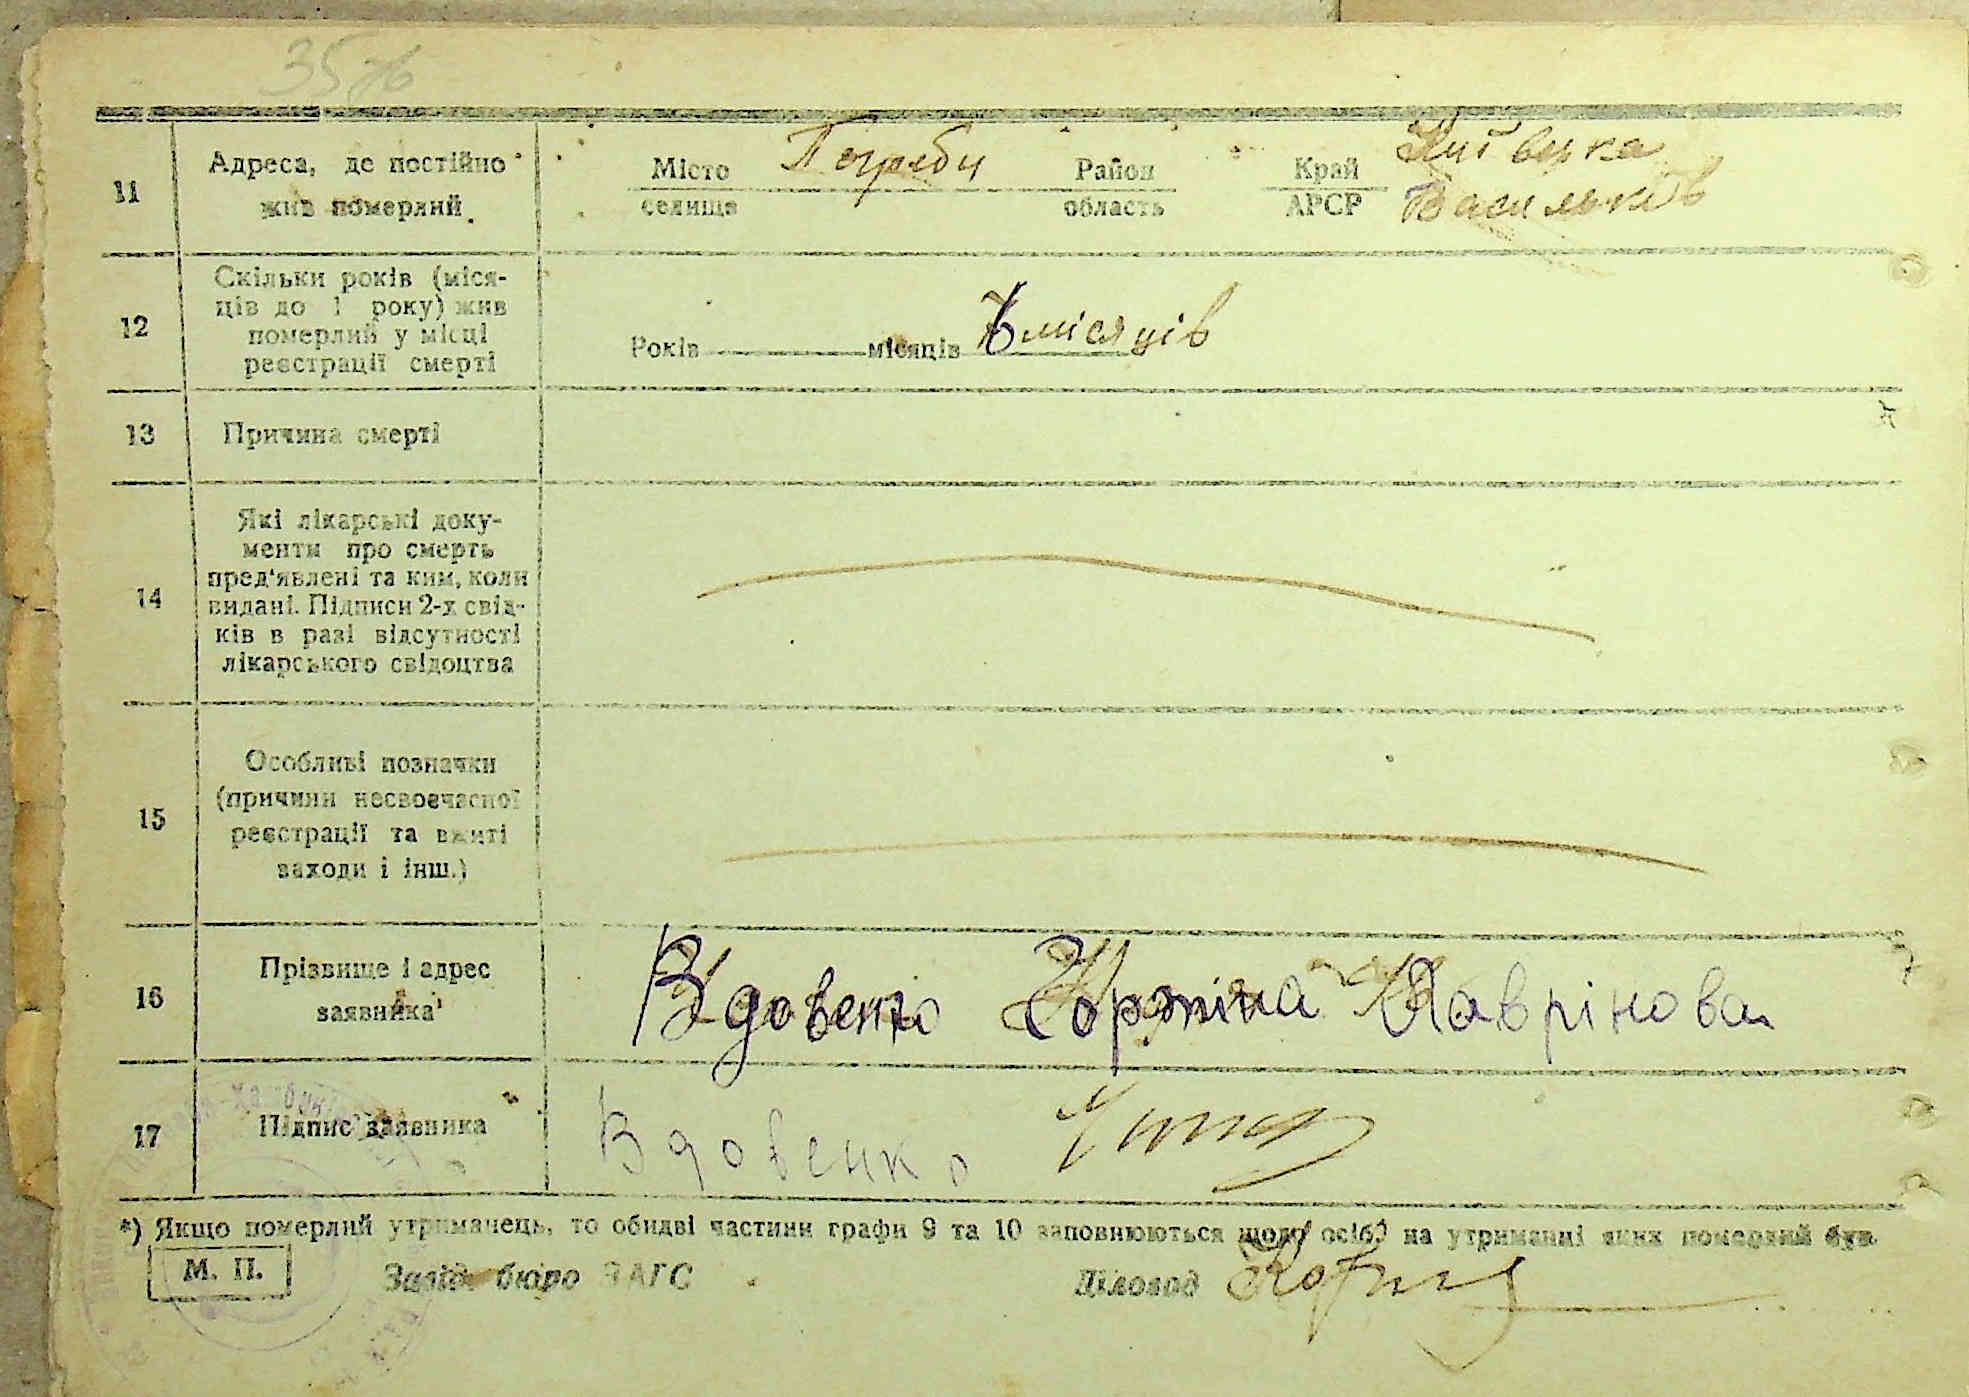 35
11 Адреса, де постійно Місто Погреби Район Край Київська
жив померлий селище область АРСР Васильків
Скільки років (міся-
ців до 1 року) жив
12 померлий у місці
реєстрації смерті Років місяців 8 місяців
13 Причина смерті
Які лікарські доку-
менти про смерть
пред'явлені та ким, коли
14 видані. Підписи 2-х свід-
ків в разі відсутності
лікарського свідоцтва
Особливі позначки
(причини несвоєчасної
15 реєстрації та вжиті
заходи і інш.)
16 Прізвище і адрес Вдовенко Горпіна Лаврінова
заявника
17 Підпис заявника Вдовенко
*) Якщо померлий утриманець, то обидві частини графи 9 та 10 заповнюються щодо осіб, на утриманні яких померлий був.
М. П. Завід. бюро ЗАГС Діловод